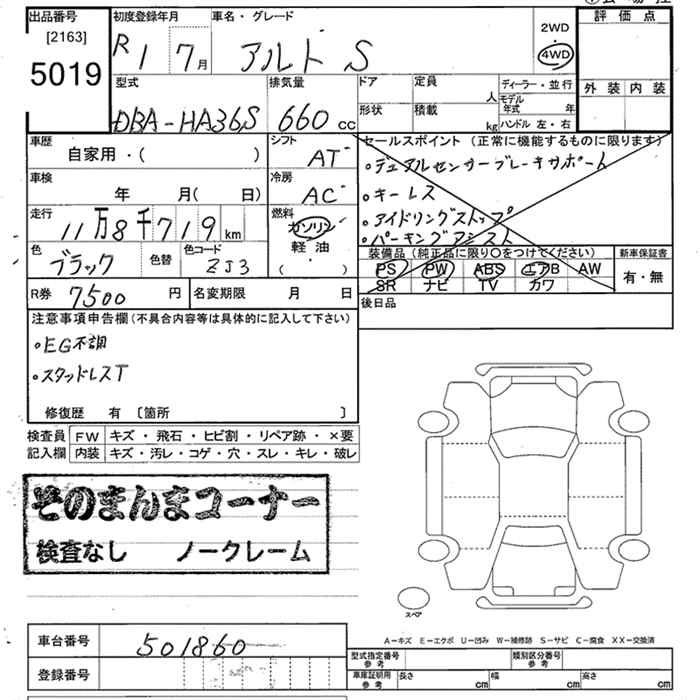 出品番号
[2163]
5019
初度登録年月
R 1 7月
車名・グレード
アルト S
2WD
・
4WD
評価点
外装 内装
型式
DBA-HA36S
排気量
660 cc
ドア
定員
人
ディーラー・並行
形状
積載
kg
モデル年式
年
ハンドル 左・右
車歴
自家用・( )
シフト
AT
セールスポイント (正常に機能するものに限ります)
・デュアルセンサーブレーキサポート
・キーレス
・アイドリングストップ
・パーキングアシスト
車検
年 月( 日)
冷房
AC
走行
11万8千719 km
燃料
ガソリン
軽油
( ・ )
色
ブラック
色替
色コード
ZJ3
装備品 (純正品に限り○をつけてください)
PS PW ABS エアB AW
SR ナビ TV カワ
新車保証書
有・無
R券 7500 円
名変期限 月 日
後日品
注意事項申告欄 (不具合内容等は具体的に記入して下さい)
・EG不調
・スタッドレスT
修復歴 有 〔箇所 〕
検査員 FW キズ・飛石・ヒビ割・リペア跡・×要
記入欄 内装 キズ・汚レ・コゲ・穴・スレ・キレ・破レ
そのまんまコーナー
検査なし ノークレーム
スペア
A-キズ E-エクボ U-凹み W-補修跡 S-サビ C-腐食 XX-交換済
車台番号 501860
登録番号
型式指定番号 参考
類別区分番号 参考
車庫証明用 参考
長さ cm
幅 cm
高さ cm